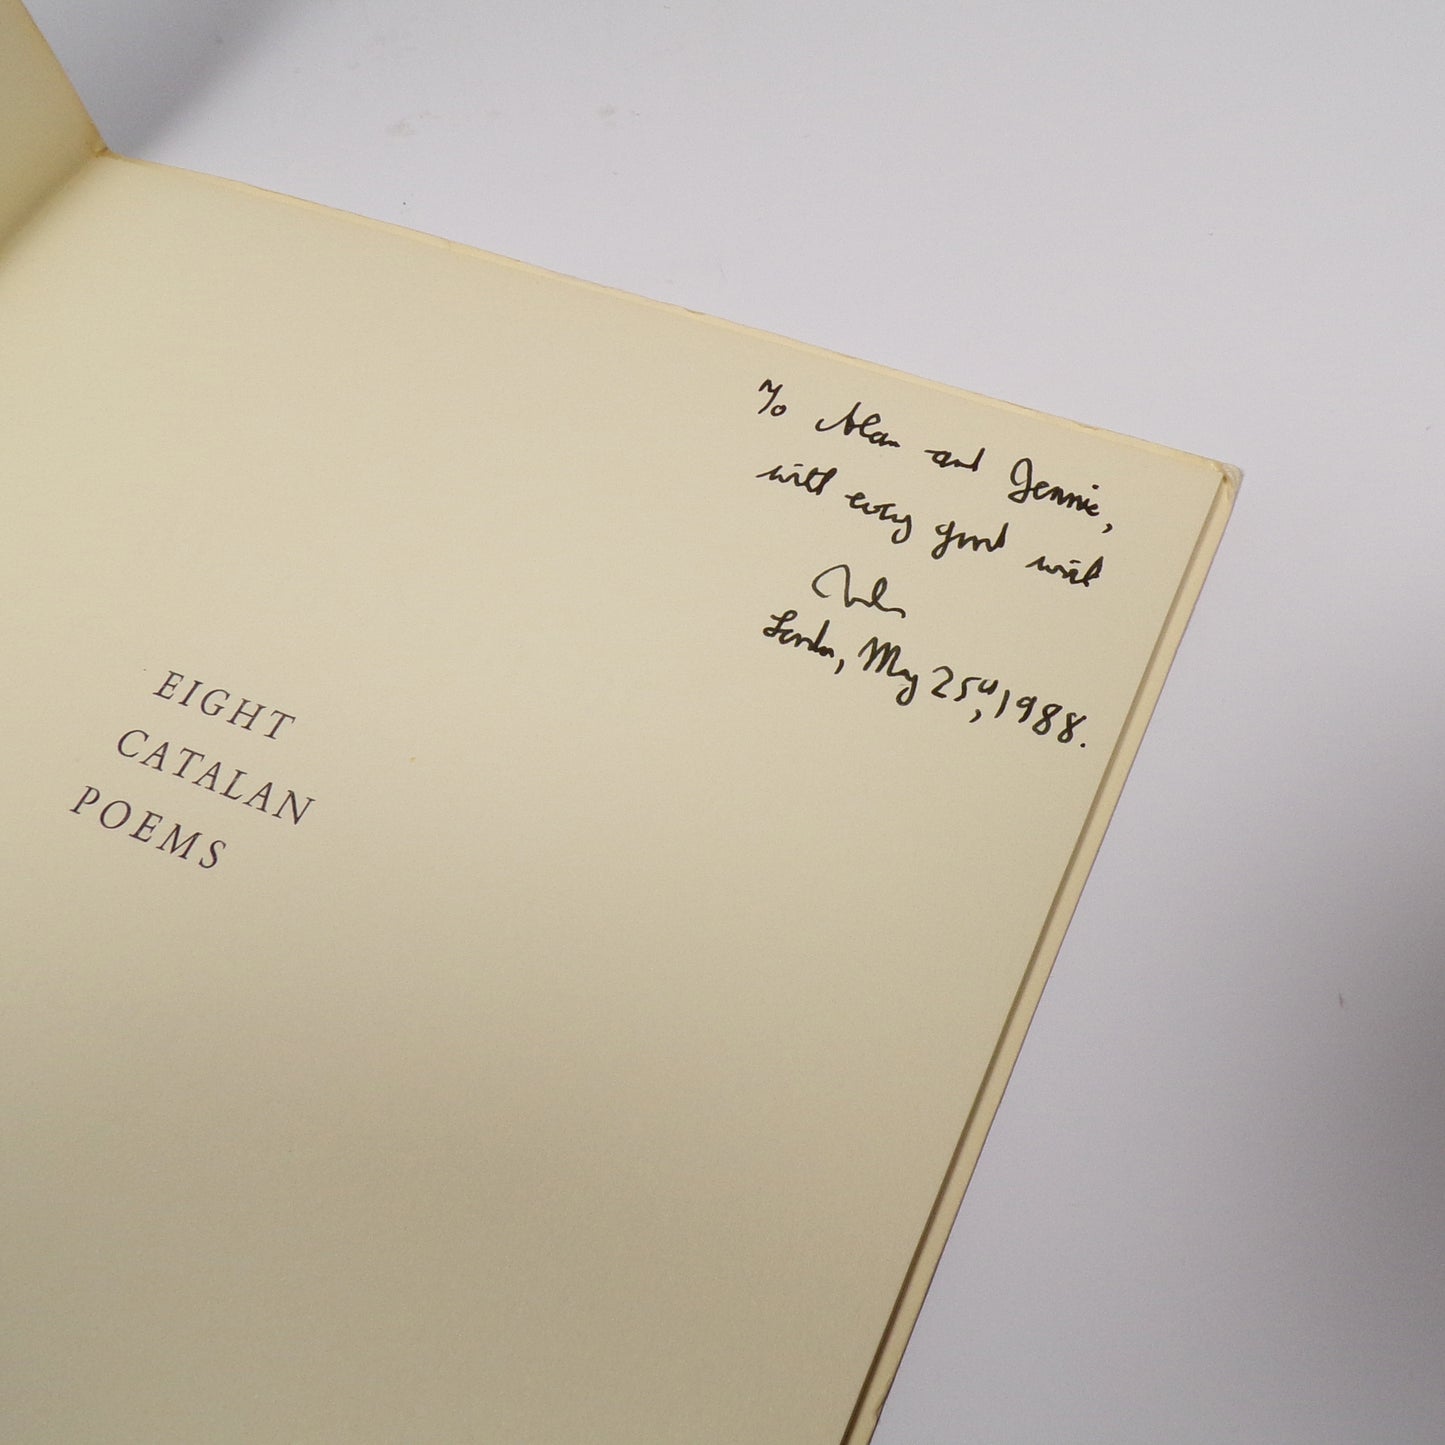 To Alan and Jennie,
with every good wish
London, May 25th, 1988.
EIGHT
CATALAN
POEMS